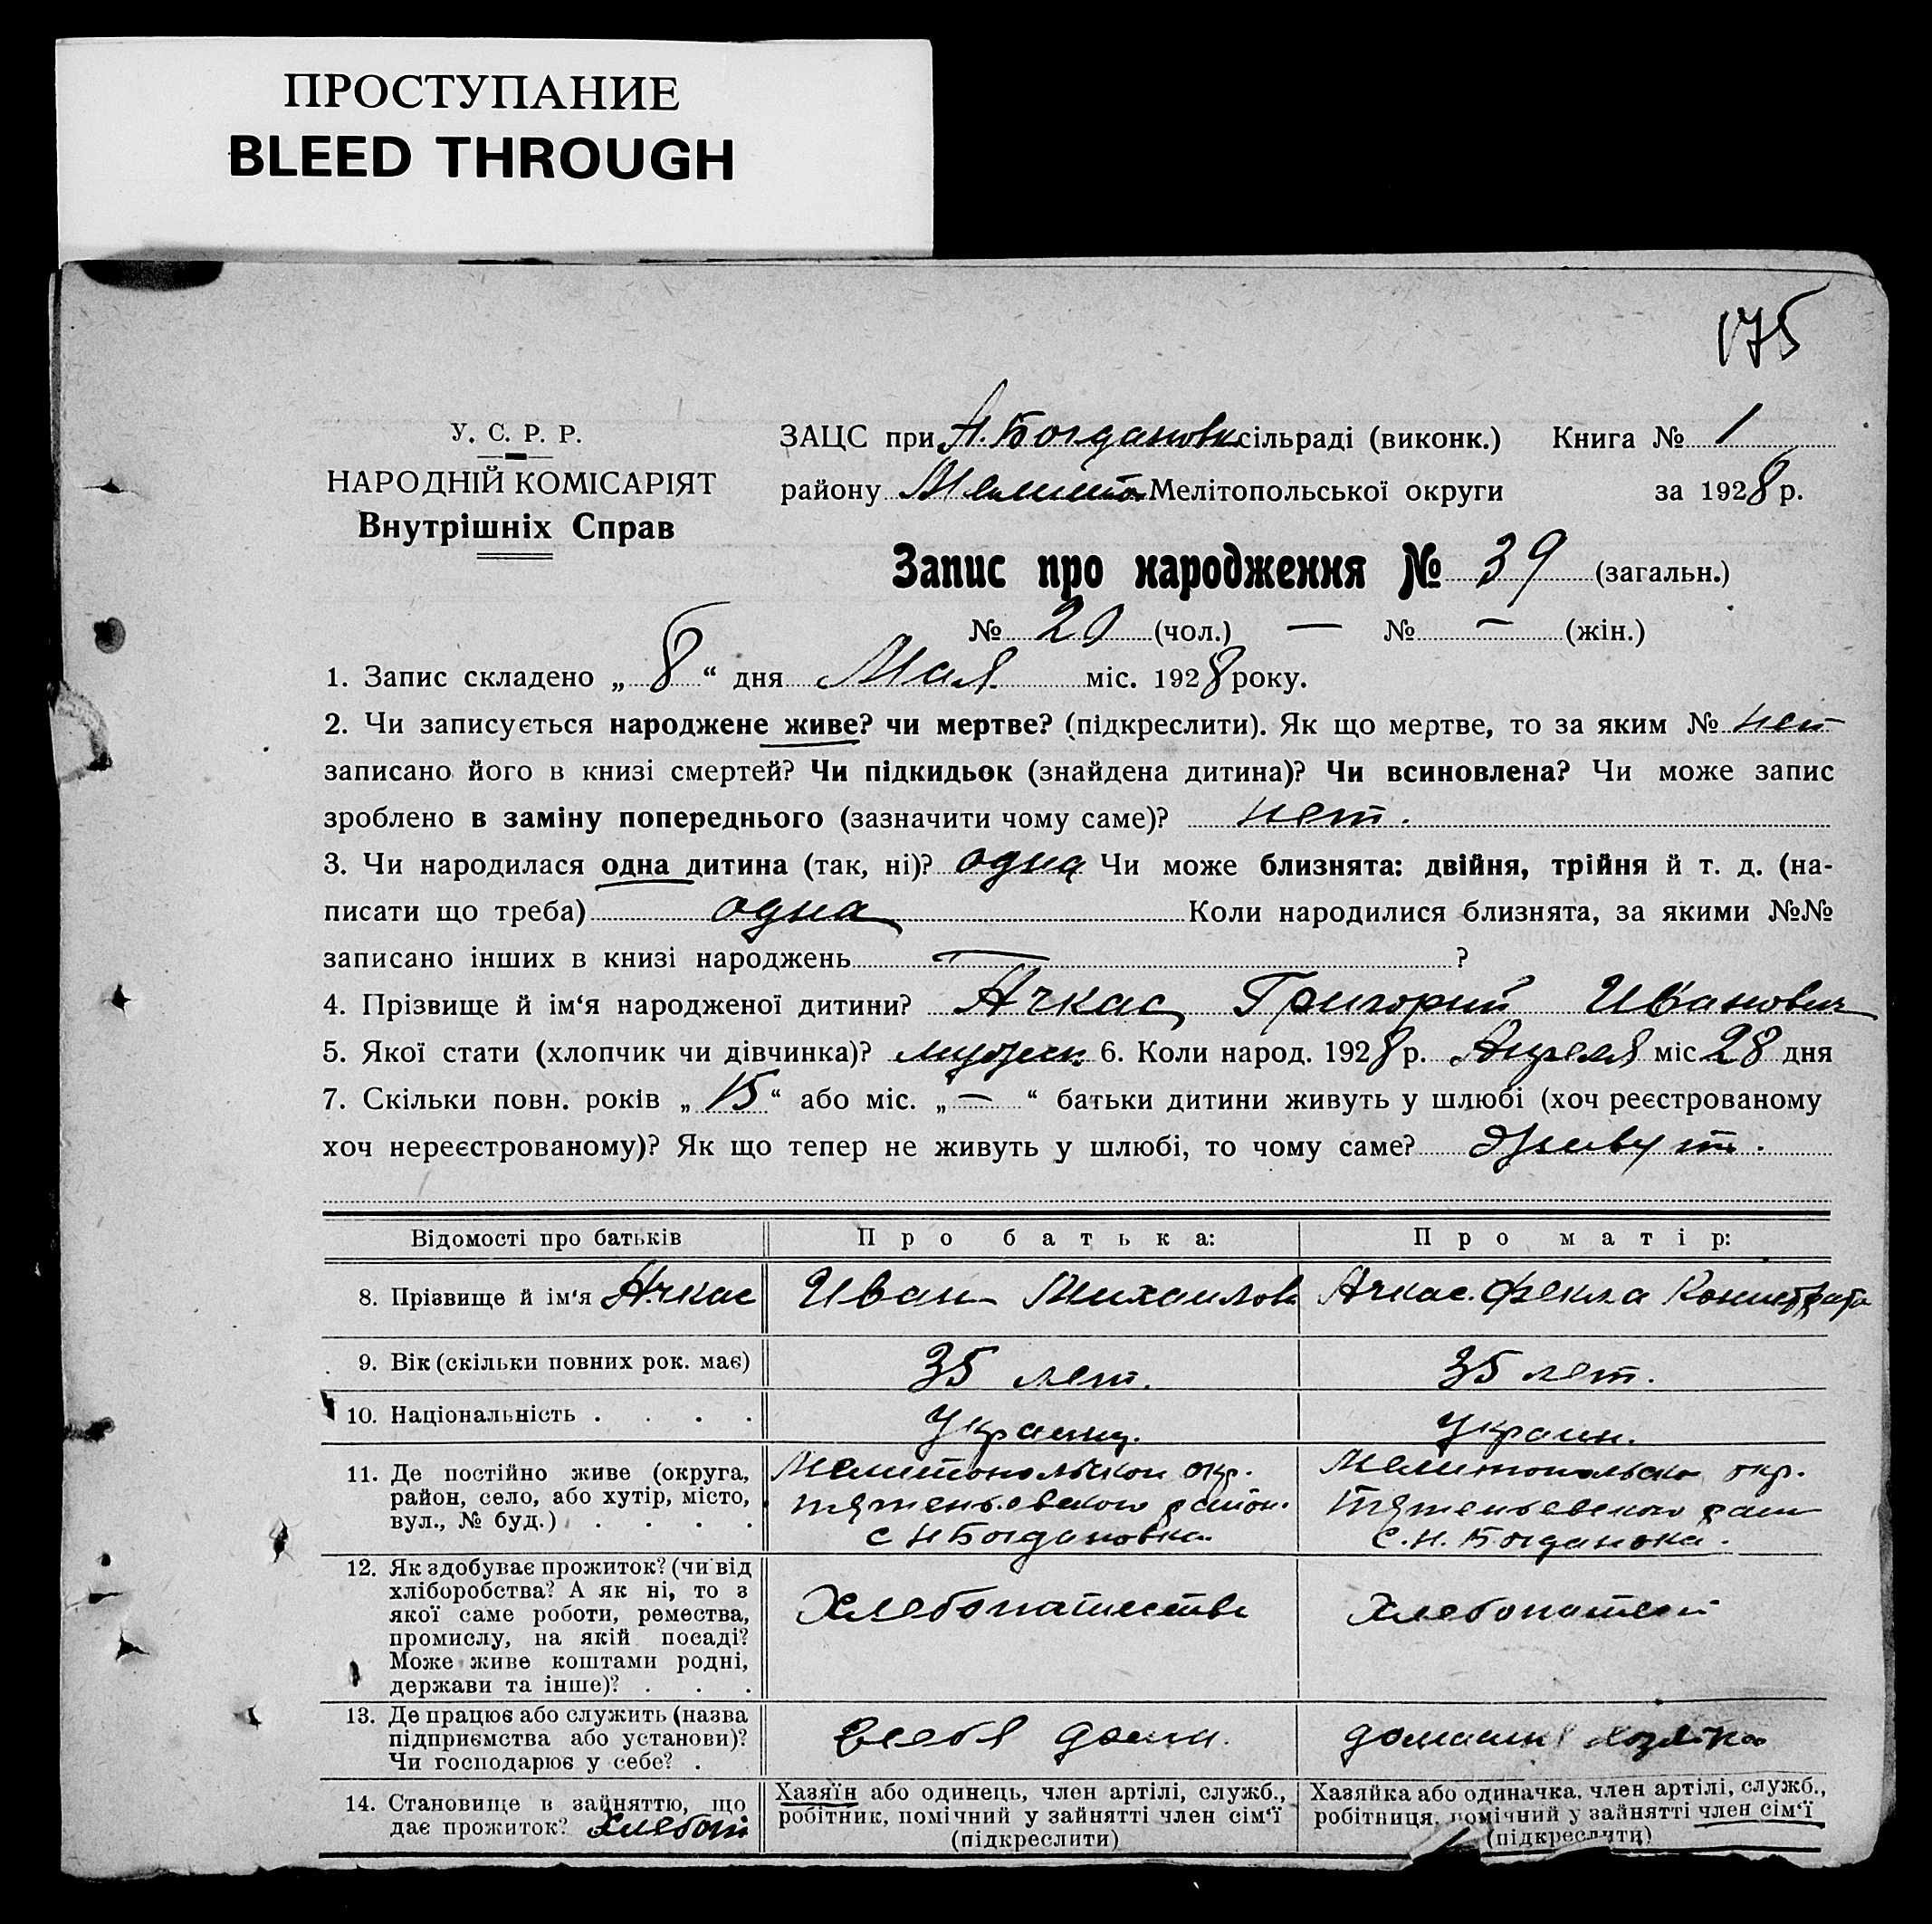 ПРОСТУПАНИЕ
BLEED THROUGH
175
У. С. Р. Р.
НАРОДНІЙ КОМІСАРІЯТ
Внутрішніх Справ
ЗАЦС при Н. Богдановк сільраді (виконк.) Книга № 1
району Мелитоп Мелітопольської округи за 1928 р.
Запис про народження № 39 (загальн.)
№ 20 (чол.) — № — (жін.)
1. Запис складено „ 8 “ дня Мая міс. 1928 року.
2. Чи записується народжене живе? чи мертве? (підкреслити). Як що мертве, то за яким № нет
записано його в книзі смертей? Чи підкидьок (знайдена дитина)? Чи всиновлена? Чи може запис
зроблено в заміну попереднього (зазначити чому саме)? нет.
3. Чи народилася одна дитина (так, ні)? одна Чи може близнята: двійня, трійня й т. д. (на-
писати що треба) одна Коли народилися близнята, за якими №№
записано інших в книзі народжень — ?
4. Прізвище й ім‘я народженої дитини? Ачкас Григорий Иванович
5. Якої стати (хлопчик чи дівчинка)? 6. Коли народ. 1928 р. Апреля міс 28 дня
7. Скільки повн. років „ 15 “ або міс. „ — “ батьки дитини живуть у шлюбі (хоч реєстрованому
хоч нереєстрованому)? Як що тепер не живуть у шлюбі, то чому саме? Живут.
Відомості про батьків Про батька: Про матір:
8. Прізвище й ім‘я Ачкас Иван Михаилов Ачкас Фекла
9. Вік (скільки повних рок. має) 35 лет. 35 лет.
10. Національність . . . . Украинц. Украин.
11. Де постійно живе (округа, район, село, або хутір, місто, вул., № буд.) . . . .
Мелитопольской окр.
район.
с Н Богдановка
Мелитопольско окр.
С. Н. Богданока.
12. Як здобуває прожиток? (чи від
хліборобства? А як ні, то з
якої саме роботи, ремества,
промислу, на якій посаді?
Може живе коштами родні,
держави та інше)? . . .
Хлебопашество
Хлебопашест
13. Де працює або служить (назва
підприємства або установи)?
Чи господарює у себе? .
себя дома.
домашн хозяйка
14. Становище в зайняттю, що
дає прожиток? Хлебоп
Хазяїн або одинець, член артілі, служб.,
робітник, помічний у зайнятті член сім‘ї
(підкреслити)
Хазяйка або одиначка, член артілі, служб.,
робітниця, помічний у зайнятті член сім‘ї
(підкреслити)